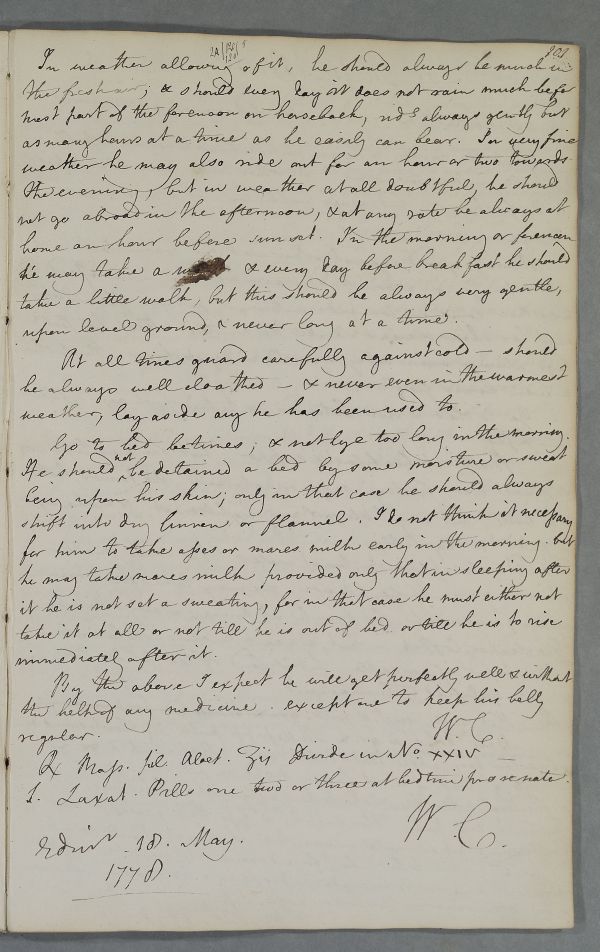 In weather allowing of it, he should always be much in
the fresh air; & should every day it does not rain much be for
most part of the forenoon on horseback, rid.g always gently but
as many hours at a time as he easily can bear. In very fine
weather he may also ride out for an hour or two towards
the evening, but in weather at all doubtful, he should
not go abroad in the afternoon, & at any rate be always at
home an hour before sunset. In the morning or forenoon
he may take a & every day before breakfast he should
take a little walk, but this should be always very gentle,
upon level ground, & never long at a time.
At all times guard carefully against cold — should
be always well cloathed — & never even in the warmest
weather, lay aside any he has been used to.
Go to bed betimes, & not lye too long in the morning.
He should not be detained a bed by some moisture or sweat
being upon his skin; only in that case he should always
shift into dry linnen or flannel. I do not think it necessary
for him to take asses or mares milk early in the morning. but
he may take mares milk provided only that in sleeping after
it he is not set a sweating, for in that case he must either not
take it at all or not till he is out of bed or till he is to rise
immediately after it.
By the above I expect he will get perfectly well & without
the help of any medicine except one to keep his belly
regular. W. C.
℞ Mass. pil. Aloet. ʒij Divide in No. XXIV —
S. Laxat. Pills one two or three at bedtime pro re nata.
W. C.
Edinr. 18. May.
1778.